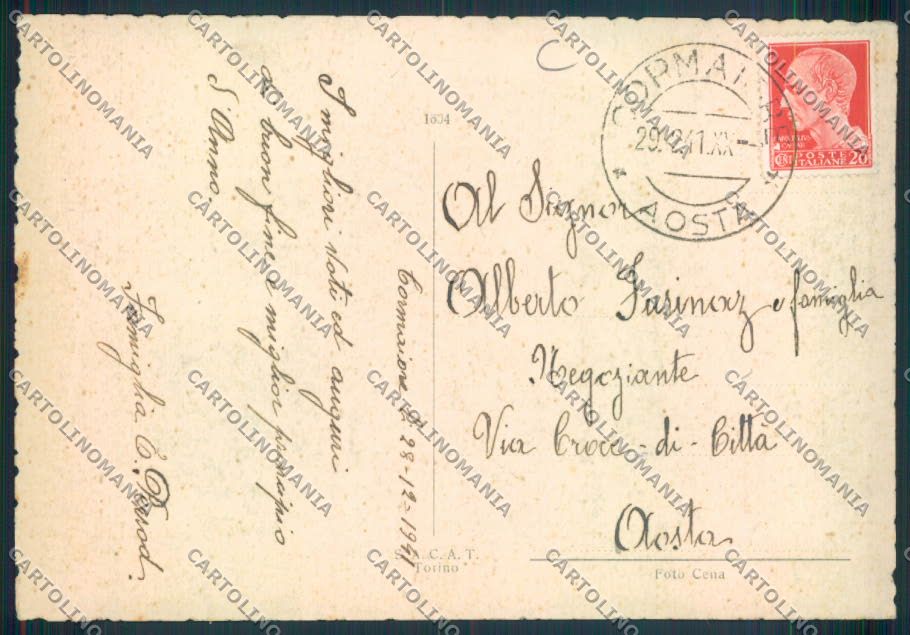 I migliori Voti ed auguri
di buon fine e miglior principio
d'Anno.
Famiglia C.
28-12-1941
1604
S.A.C.A.T.
Torino
CORMAIORE
29.12.41.XX
AOSTA
POSTE
ITALIANE 20
Al Signor
Alberto e famiglia
Negoziante
Via Croce-di-Città
Aosta
Foto Cena
CARTOLINOMANIA